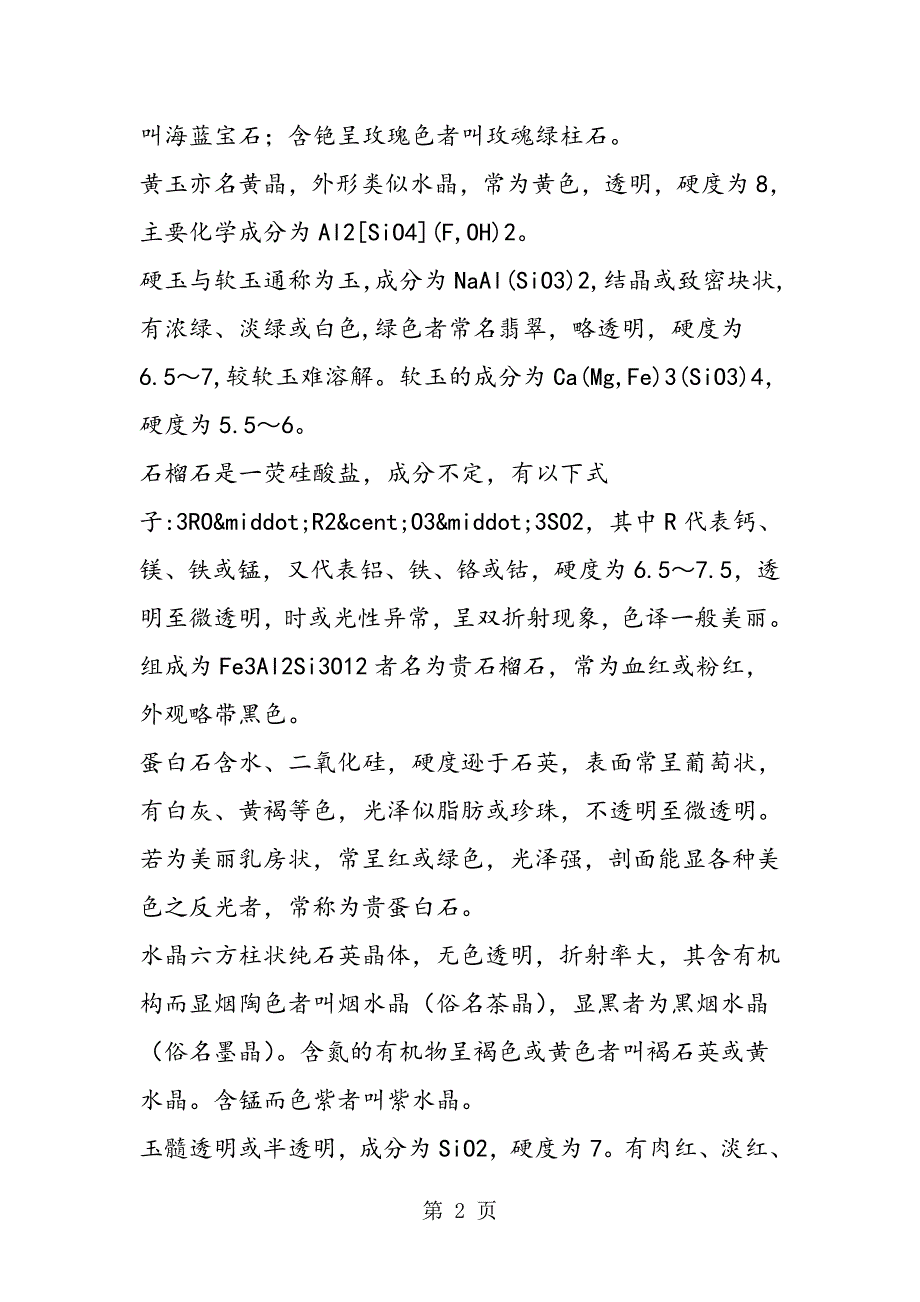 叫海蓝宝石；含铯呈玫瑰色者叫玫魂绿柱石。
黄玉亦名黄晶，外形类似水晶，常为黄色，透明，硬度为8，
主要化学成分为Al2[SiO4](F,OH)2。
硬玉与软玉通称为玉,成分为NaAl(SiO3)2,结晶或致密块状，
有浓绿、淡绿或白色,绿色者常名翡翠，略透明，硬度为
6.5～7,较软玉难溶解。软玉的成分为Ca(Mg,Fe)3(SiO3)4，
硬度为5.5～6。
石榴石是一荧硅酸盐，成分不定，有以下式
子:3RO&middot;R2&cent;O3&middot;3SO2，其中R代表钙、
镁、铁或锰，又代表铝、铁、铬或钴，硬度为6.5～7.5，透
明至微透明，时或光性异常，呈双折射现象，色译一般美丽。
组成为Fe3Al2Si3O12者名为贵石榴石，常为血红或粉红，
外观略带黑色。
蛋白石含水、二氧化硅，硬度逊于石英，表面常呈葡萄状，
有白灰、黄褐等色，光泽似脂肪或珍珠，不透明至微透明。
若为美丽乳房状，常呈红或绿色，光泽强，剖面能显各种美
色之反光者，常称为贵蛋白石。
水晶六方柱状纯石英晶体，无色透明，折射率大，其含有机
构而显烟陶色者叫烟水晶（俗名茶晶），显黑者为黑烟水晶
（俗名墨晶）。含氮的有机物呈褐色或黄色者叫褐石英或黄
水晶。含锰而色紫者叫紫水晶。
玉髓透明或半透明，成分为SiO2，硬度为7。有肉红、淡红、
第 2 页